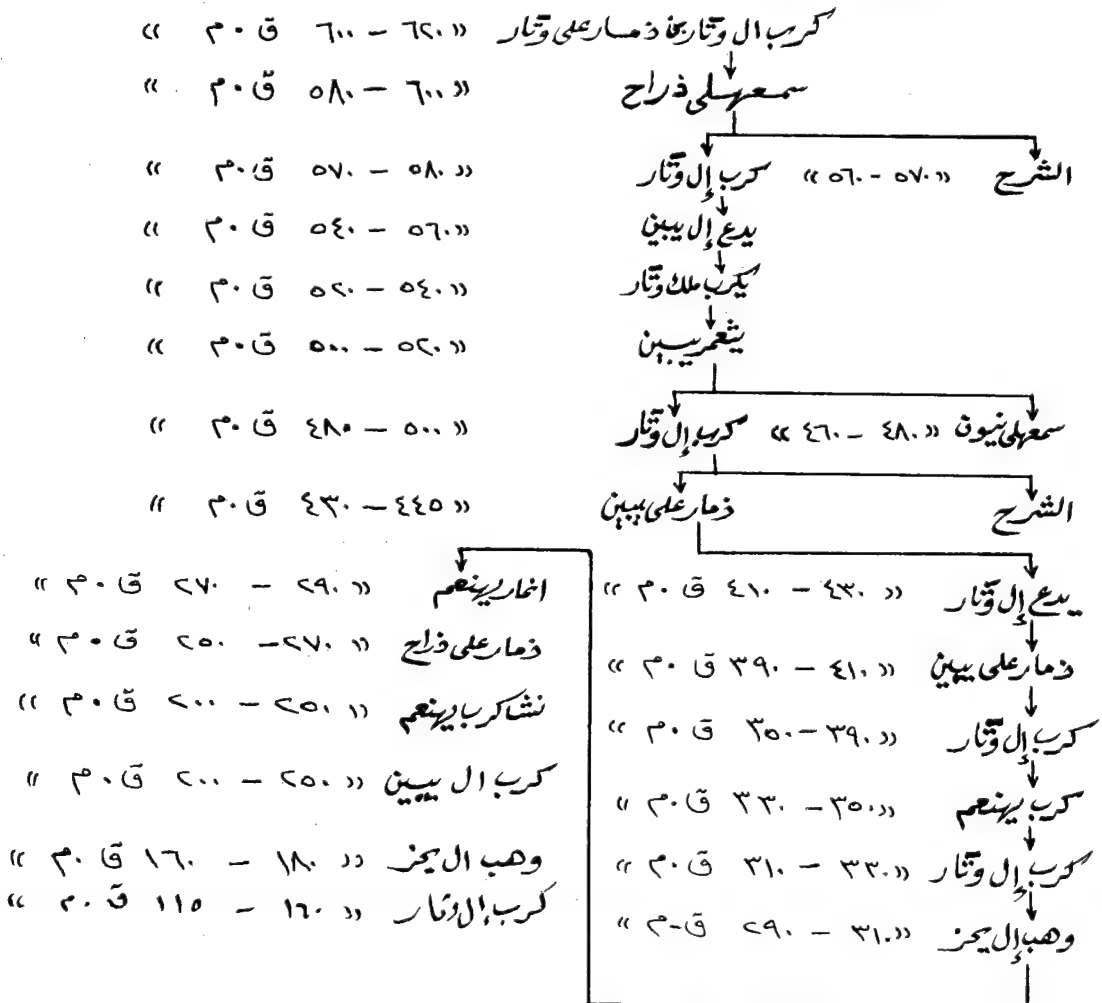 كرب ال وتار بن ذمار على وتار « ٦٢٠ – ٦٠٠ ق ٠ م »
سمعهلى ذراح « ٦٠٠ – ٥٨٠ ق ٠ م »
الشرح « ٥٧٠ - ٥٦٠ » كرب إل وتار « ٥٨٠ – ٥٧٠ ق ٠ م »
يدع إل يبين « ٥٦٠ – ٥٤٠ ق ٠ م »
يكرب ملك وتار « ٥٤٠ – ٥٢٠ ق ٠ م »
يثعمر يبين « ٥٢٠ – ٥٠٠ ق ٠ م »
سمعهلى نيون « ٤٨٠ – ٤٦٠ » كرب إل وتار « ٥٠٠ – ٤٨٠ ق ٠ م »
الشرح ذمار على يبين « ٤٤٥ – ٤٣٠ ق ٠ م »
يدع إل وتار « ٤٣٠ – ٤١٠ ق ٠ م »
ذمار على يبين « ٤١٠ – ٣٩٠ ق ٠ م »
كرب إل وتار « ٣٩٠ – ٣٥٠ ق ٠ م »
كرب يهنعم « ٣٥٠ – ٣٣٠ ق ٠ م »
كرب إل وتار « ٣٣٠ – ٣١٠ ق ٠ م »
وهب إل يحز « ٣١٠ – ٢٩٠ ق - م »
انمار يهنعم « ٢٩٠ – ٢٧٠ ق ٠ م »
ذمار على ذراح « ٢٧٠ – ٢٥٠ ق ٠ م »
نشاكرب يهنعم « ٢٥٠ – ٢٠٠ ق ٠ م »
كرب ال يبين « ٢٥٠ – ٢٠٠ ق ٠ م »
وهب ال يحز « ١٨٠ – ١٦٠ ق ٠ م »
كرب إل وتار « ١٦٠ – ١١٥ ق ٠ م »